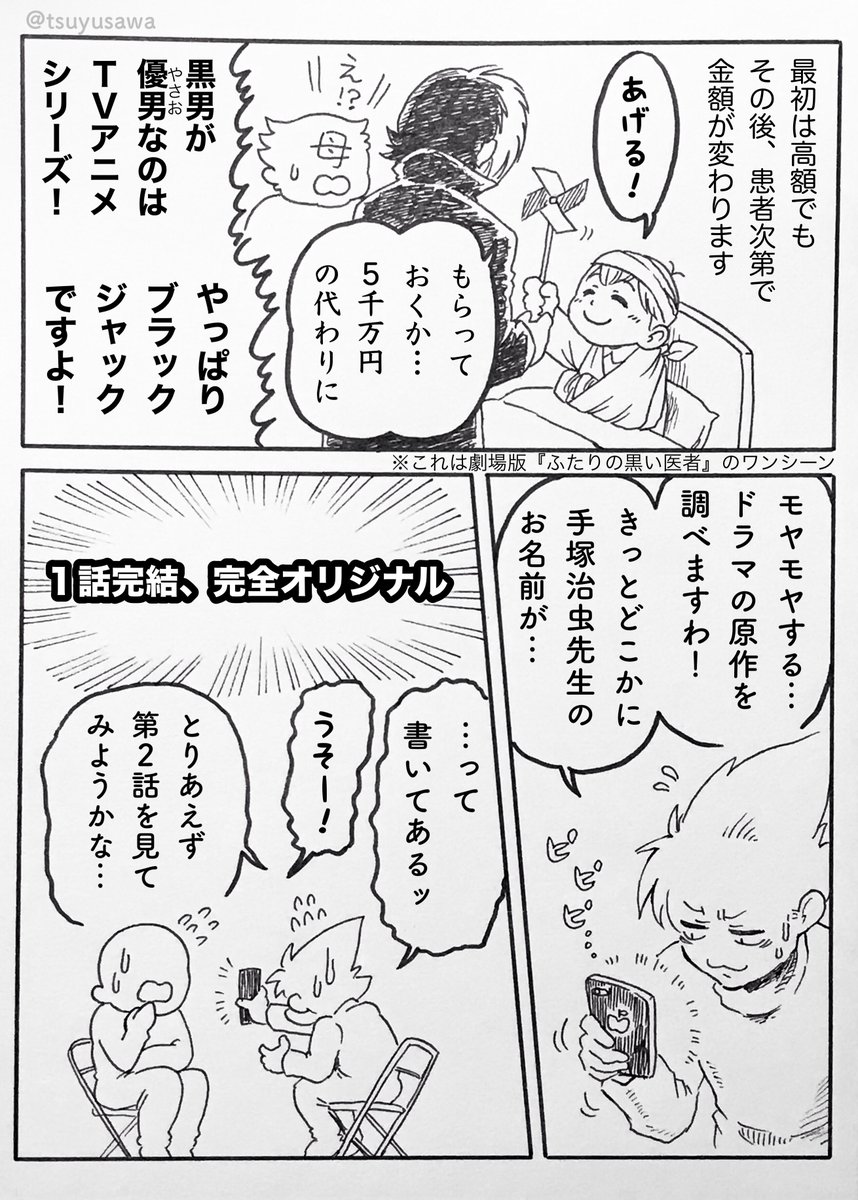 @tsuyusawa
最初は高額でも
その後、患者次第で
金額が変わります
あげる！
え!?
母
もらって
おくか…
５千万円
の代わりに
やっぱり
ブラック
ジャック
ですよ！
黒男が
優男なのは
やさお
ＴＶアニメ
シリーズ！
※これは劇場版『ふたりの黒い医者』のワンシーン
モヤモヤする…
ドラマの原作を
調べますわ！
きっとどこかに
手塚治虫先生の
お名前が…
ピ
ピ
ピ…
１話完結、完全オリジナル
…って
書いてあるッ
うそー！
とりあえず
第２話を見て
みようかな…